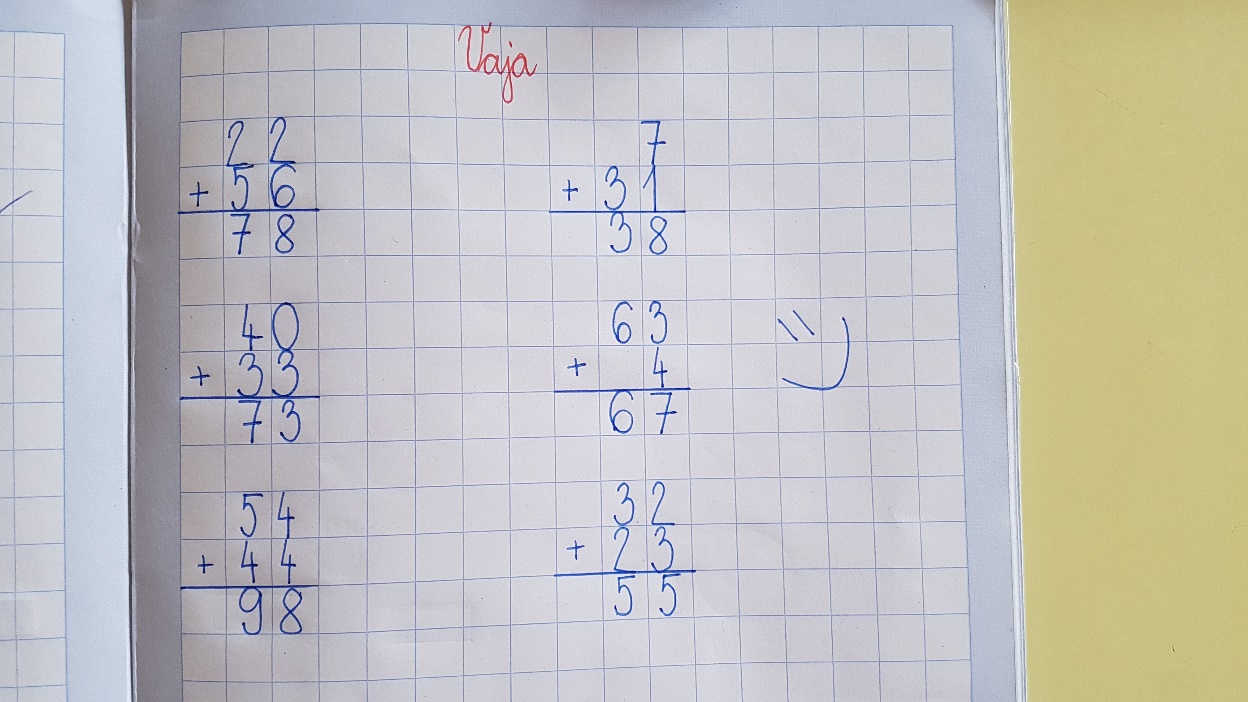 Vaja
22
+ 56
78
7
+ 31
38
40
+ 33
73
63
+ 4
67
54
+ 44
98
32
+ 23
55